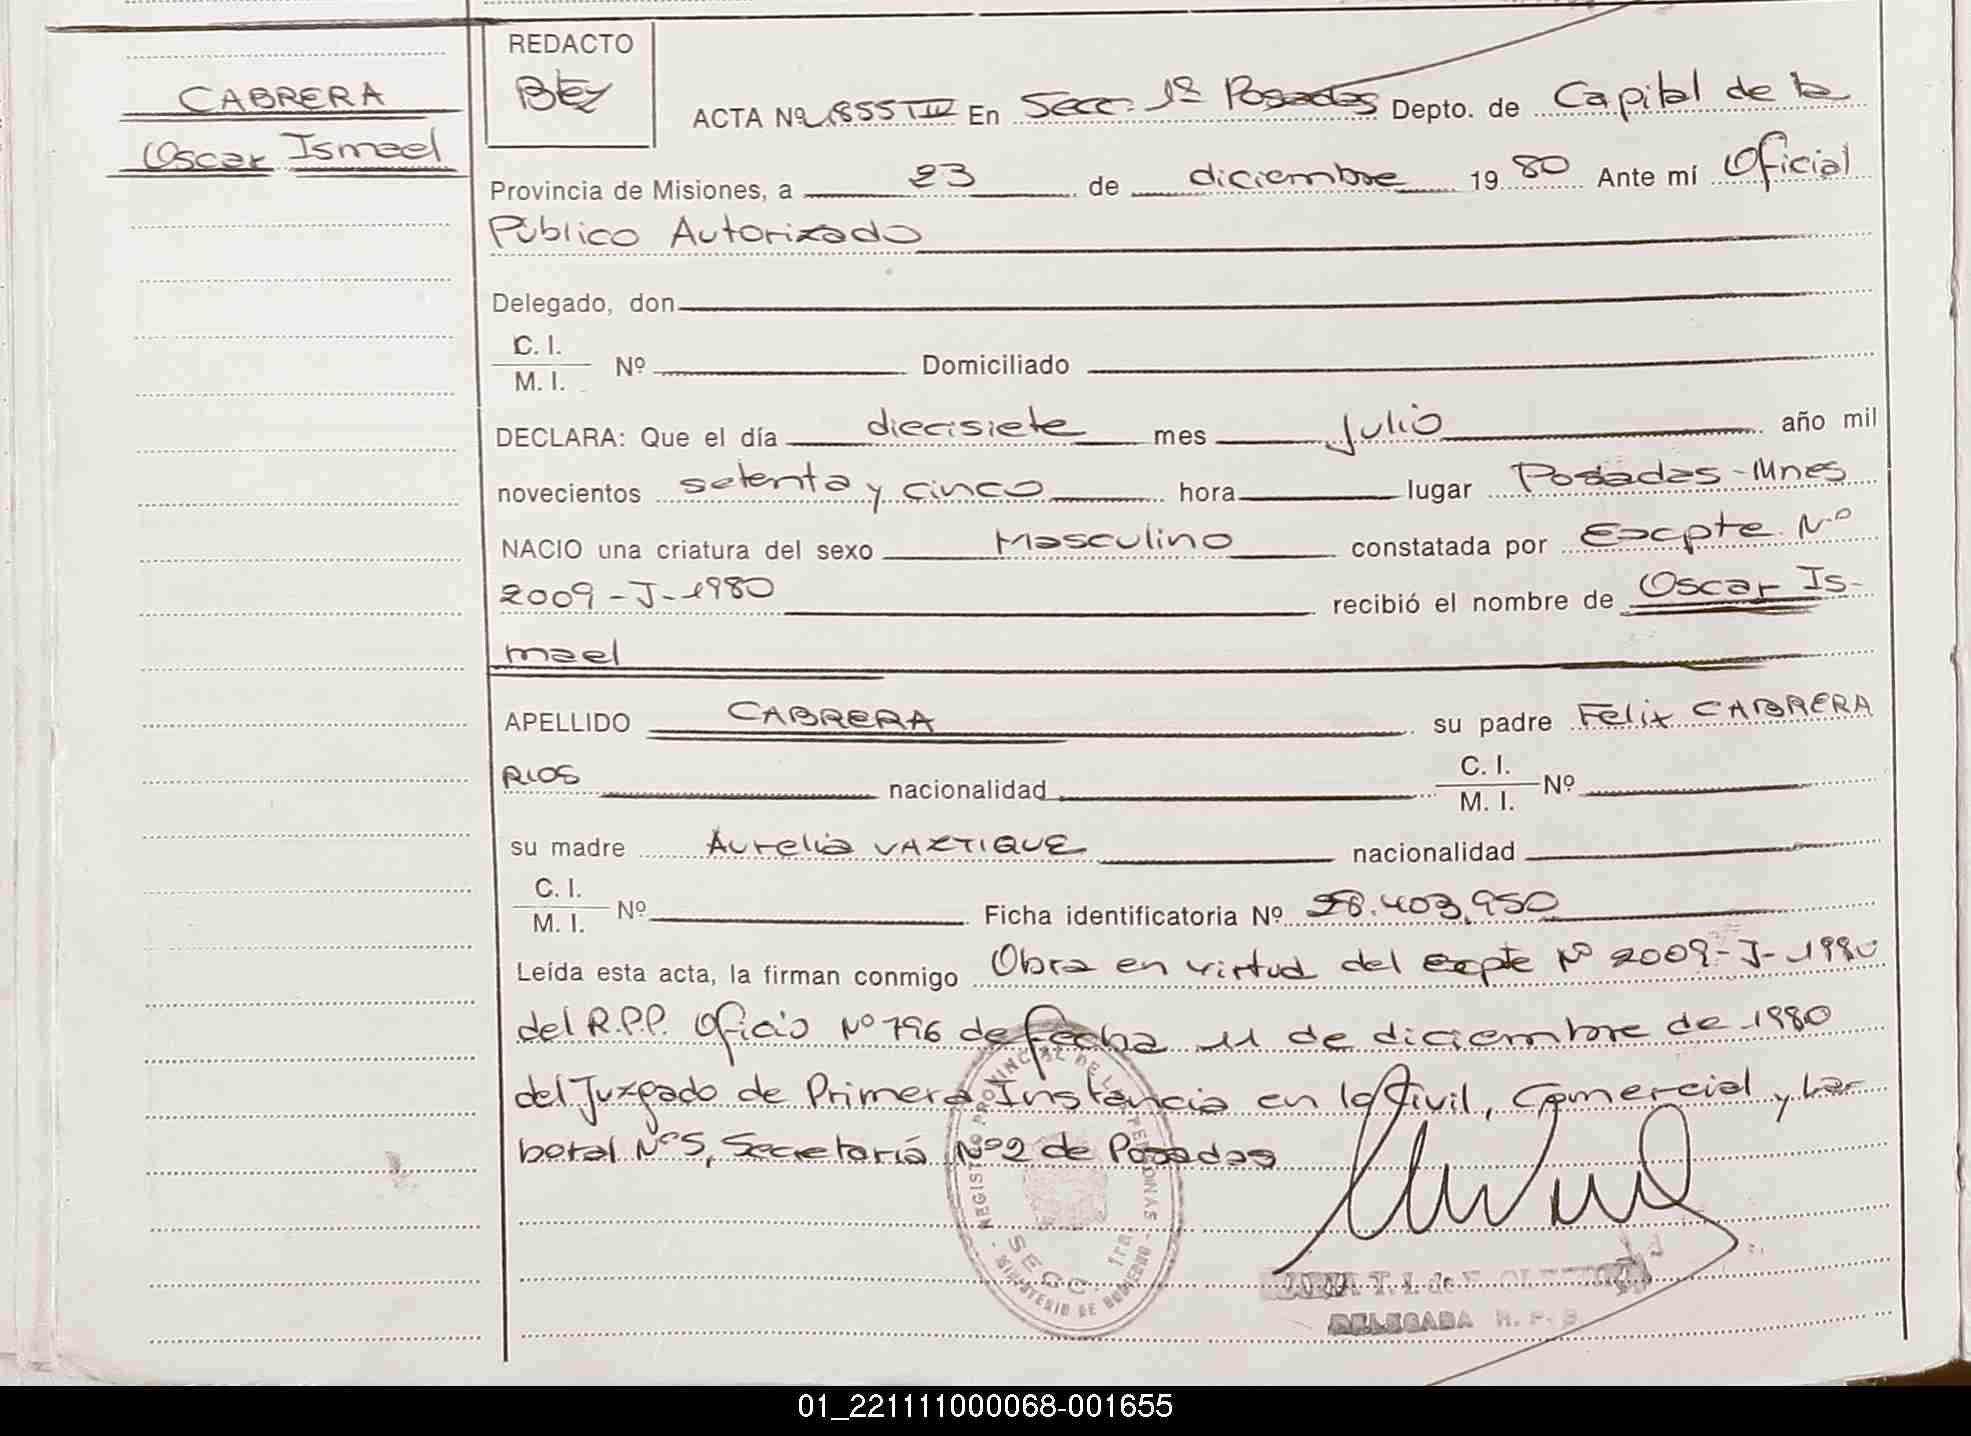 CABRERA
Oscar Ismael
REDACTO
ACTA Nº 1855 TIV En Secc. 1ª Posadas Depto. de Capital de la
Provincia de Misiones, a 23 de diciembre 19 80 Ante mí Oficial
Público Autorizado
Delegado, don
C. I.
M. I.
Nº Domiciliado
DECLARA: Que el día diecisiete mes julio año mil
novecientos setenta y cinco hora lugar Posadas - Mnes
NACIO una criatura del sexo Masculino constatada por Excpte. Nº
2009 - J - 1980 recibió el nombre de Oscar Is-
mael
APELLIDO CABRERA su padre Felix CABRERA
RIOS nacionalidad C. I.
M. I. Nº
su madre Aurelia VAZTIQUE nacionalidad
C. I.
M. I.
Nº Ficha identificatoria Nº 28.403.950
Leída esta acta, la firman conmigo Obra en virtud del excpte Nº 2009 - J - 1980
del R.P.P. Oficio Nº 796 de fecha 11 de diciembre de 1980
del Juzgado de Primera Instancia en lo Civil, Comercial y La-
boral Nº 5, Secretaría Nº 2 de Posadas
REGISTRO PROVINCIAL DE LAS PERSONAS
SECC. 1ra.
- MINISTERIO DE GOBIERNO -
MARIA T. I. de
DELEGADA R. P. P
01_221111000068-001655